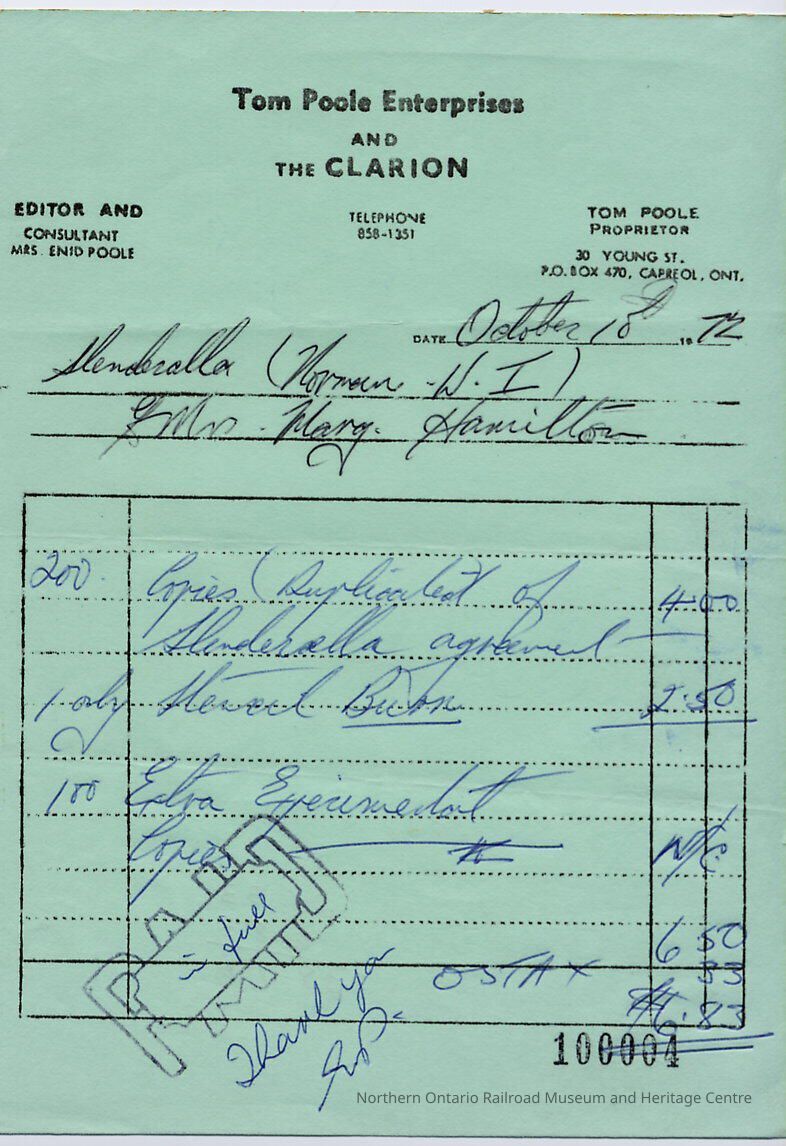 Tom Poole Enterprises
AND
THE CLARION
EDITOR AND
CONSULTANT
MRS. ENID POOLE
TELEPHONE
858-1351
TOM POOLE
PROPRIETOR
30 YOUNG ST.
P.O. BOX 470, CAPREOL, ONT.
DATE October 18th 1972
Slenderella (Norman W. I)
Mrs. Mary Hamilton
200 Copies (Duplicated) of 4.00
Slenderella agreement
1 only Stencil Burn 2.50
100 Extra Experimental
Copies N/C
6 50
OSTAX 33
$6.83
PAID
in full
Thank you
100004
Northern Ontario Railroad Museum and Heritage Centre